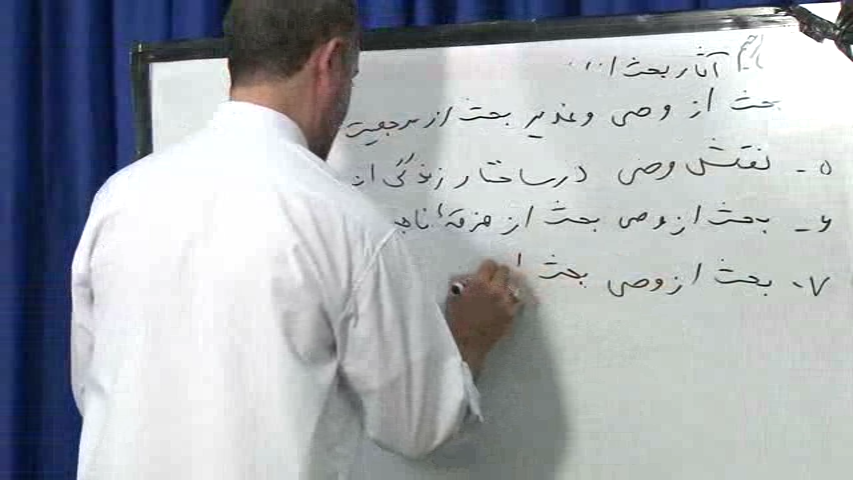 آثار بحث از
بحث از وصی و غدیر بحث از مرجعیت
۵- نقش وصی در ساختار زندگی
۶- بحث از وصی بحث از فرقهٔ ناجیه
۷- بحث از وصی بحث ا